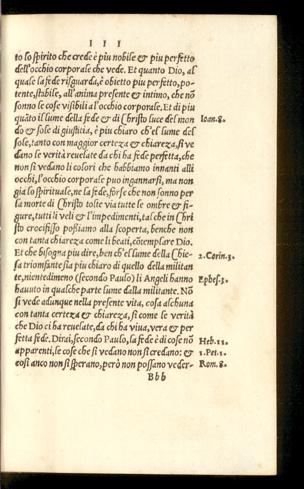 III
to lo spirito che crede è piu nobile & piu perfetto
dell'occhio corporale che vede. Et quanto Dio, al
quale la fede risguarda, è obietto piu perfetto, po-
tente, stabile, all'anima presente & intimo, che nõ
sonno le cose visibili al'occhio corporale. Et di piu
quãto il lume della fede & di Christo luce del mon Ioan.8.
do & sole di giustitia, è piu chiaro ch'el lume del
sole, tanto con maggior certeza & chiareza, si ve
dano le verità revelate da chi ha fede perfetta, che
non si vedano li colori che habbiamo innanti alli
occhi, l'occhio corporale puo ingannarsi, ma non
gia lo spirituale, ne la fede, fòrse che non sonno per
la morte di Christo tolte via tutte le ombre & fi=
gure, tutti i veli & l'impedimenti, tal che in Chri
sto crocifisso possiamo alla scoperta, benche non
con tanta chiareza come li beati, cõtemplare Dio.
Et che bisogna piu dire, ben ch'el lume della Chie- 2.Corin.3.
sa triomfante sia piu chiaro di quello della militan
te, nientedimeno (secondo Paulo) li Angeli hanno Ephes.3.
hauuto in qualche parte lume dalla militante. Nõ
si vede adunque nella presente vita, cosa alchuna
con tanta certeza & chiareza, si come le verità
che Dio ci ha reuelate, da chi ha viua, vera & per
fetta fede. Dirai, secondo Paulo, la fede è di cose nõ Heb.11.
apparenti, se cose che si vedano non si credano: & 1.Pet.1.
cosi anco non si sperano, però non possano veder- Rom.8.
Bbb